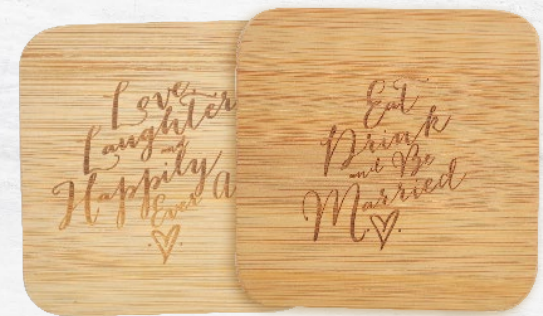 Love,
Laughter
and
Happily
Ever A
Eat
Drink
and Be
Married